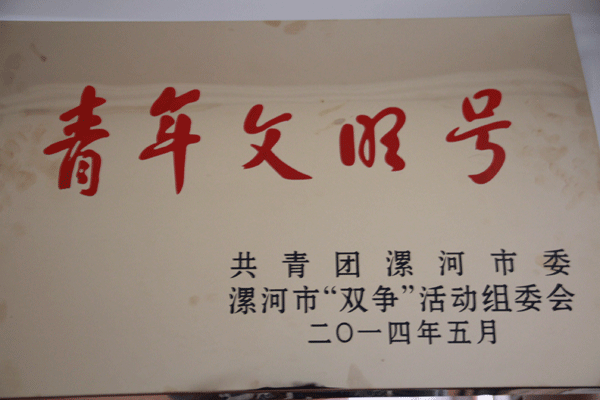 青年文明号
共青团漯河市委
漯河市“双争”活动组委会
二〇一四年五月